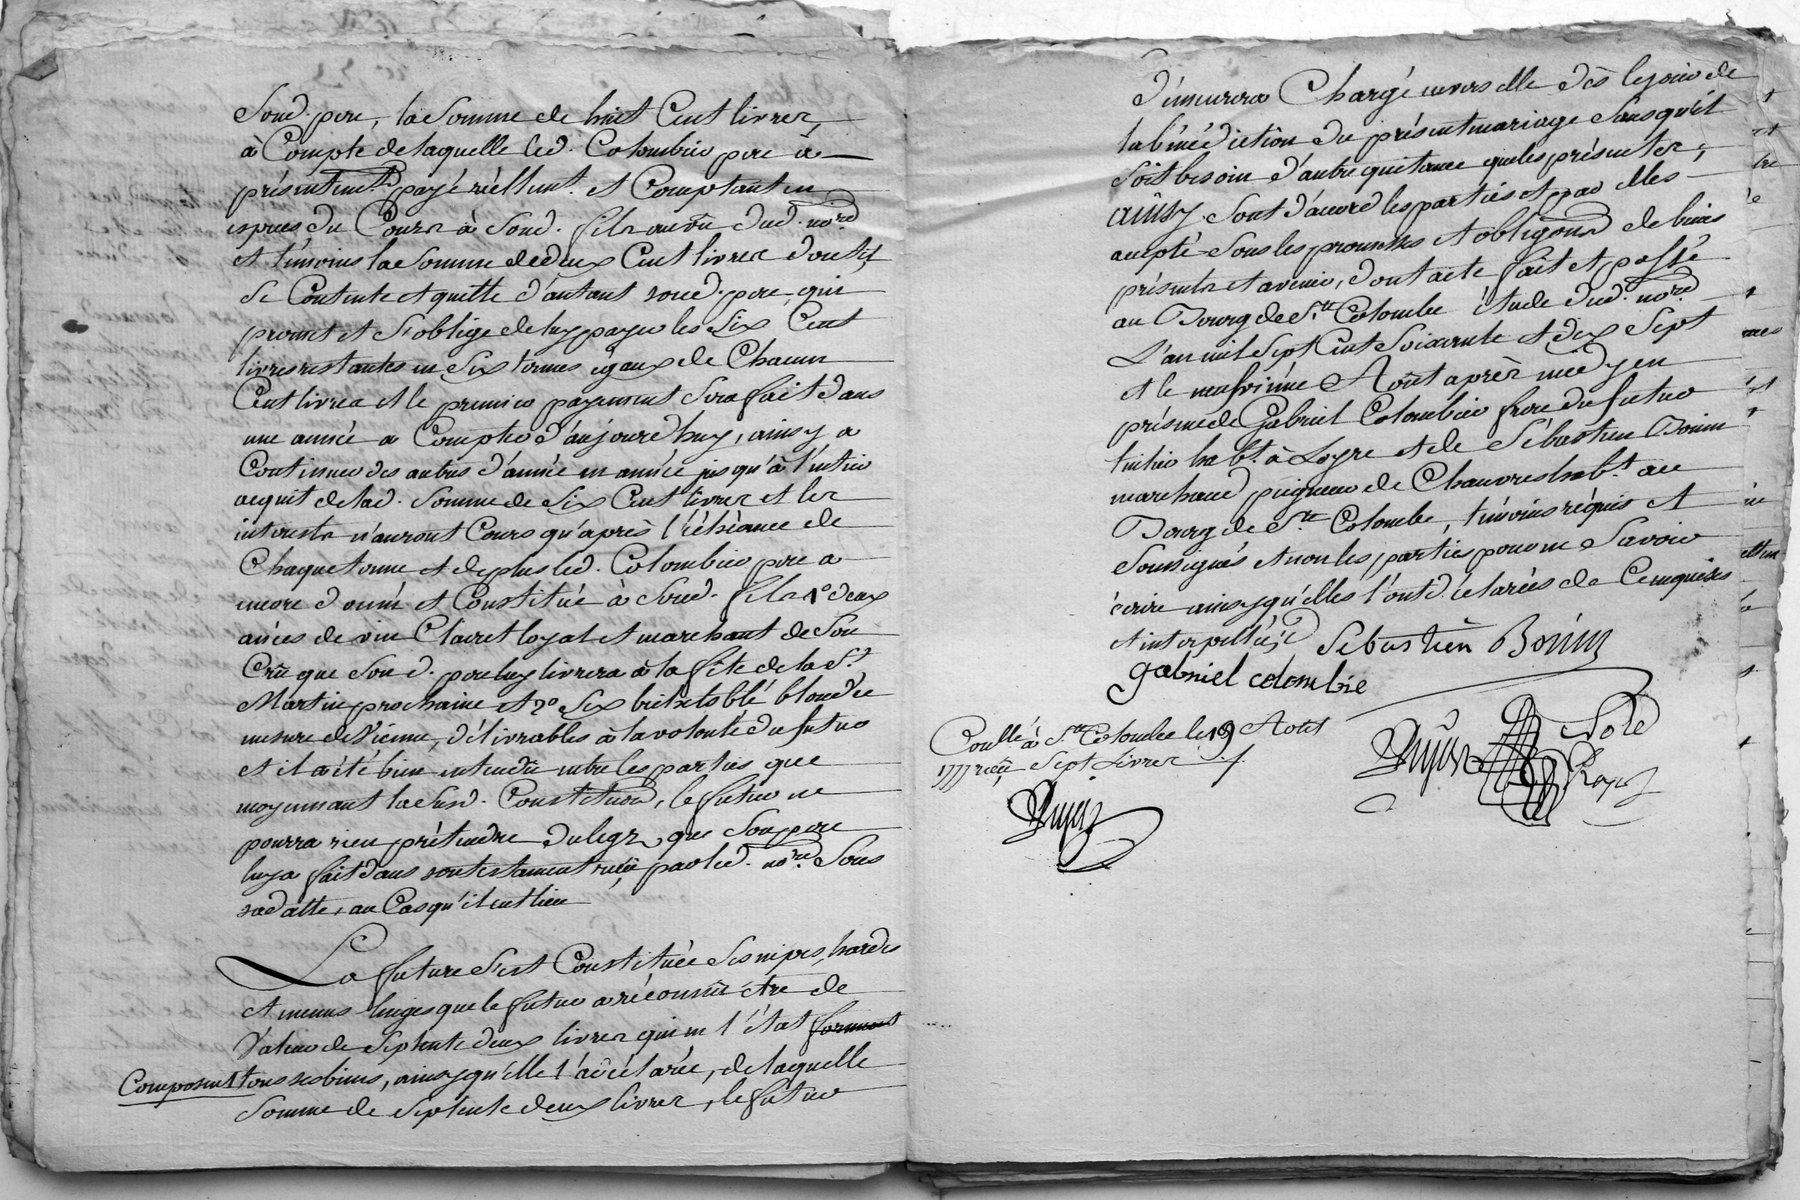 Soud. pere, la Somme de huit Cent livres,
à Compte de laquelle led. Colombier pere à
présentement payé réellemt. et Comptant en
espèces du Cours à Soud. fils au vû dud. nore.
et témoins la Somme de deux Cent livres dont il
Se Contente et quitte d'autant soud. pere, qui
promet et S'oblige de luy payer les Six Cent
livres restantes en Six termes égaux de Chacun
Cent livres et le premier payement Sera fait dans
une année a Compter d'aujourd'huy, ainsy a
Continuer des autres d'année en année jusqu'à l'entier
acquit de lad. Somme de Six Cent livres et les
interets n'auront Cours qu'après l'échéance de
Chaque terme et de plus led. Colombier pere a
encore donné et Constitué à Soud. fils 1° deux
anées de vin Clairet loyal et marchant de Son
Crû que Soud. pere luy livrera à la fête de la St.
Martin prochaine et 2° Six bichets blé blondée
mesure de Vienne, délivrables à la volonté du futur
et il a été bien entendû entre les parties que
moyennant la Susd. Constitution, le futur ne
pourra rien prétendre du legs, que Son pere
luy a fait dans son testament reçû par led. nore. Sous
sa datte, au Cas qu'il eut lieu
La future S'est Constituée Ses nipes, hardes
et menus linges que le futur a réconnû etre de
Valeur de Septente deux livres qui en l'état formant
Composent tous ses biens, ainsy qu'elle l'a déclarée, de laquelle
Somme de Septente deux livres, le futur
démeurera Chargé envers elle dès le jour de
la bénédiction du présent mariage Sans qu'il
Soit besoin d'autre quitance que les présentes,
ainsy Sont d'acord les parties et par elles
acepté Sous les promesses et obligaons. de biens
présents et avenir, dont acte fait et passé
au Bourg de Ste. Colombe étude dud. nore.
L'an mil Sept Cent Soixante et dix Sept
et le neufvième Août après midy en
présence de Gabriel Colombier frere du futur
habt. à Loyre et de Sébastien Bonin
marchand peigneur de Chanvres habt. au
Bourg de Ste. Colombe, témoins réquis et
Soussignés et non les parties pour ne Savoir
écrire ainsy qu'elles l'ont déclarées de Ce enquises
et interpellées
Sébastièn Bonin
gabriel colombie
Coullé à Ste. Colombe le 19 Aout
1777 reçû Sept Livres